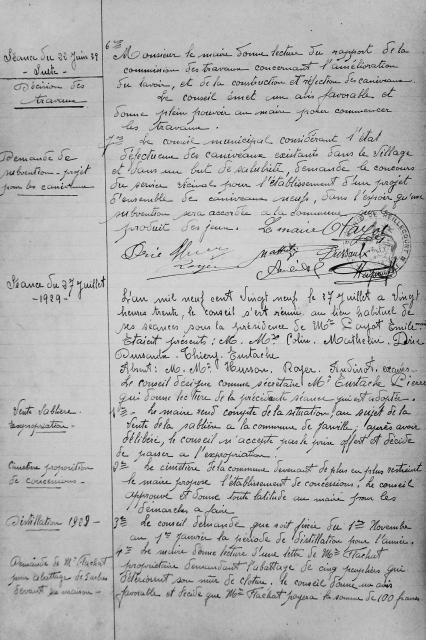 Séance du 22 Juin 29
Suite -
Décision des
travaux
6me Monsieur le maire donne lecture du rapport de la
commission des travaux concernant l'amélioration
du lavoir, et de la construction et réfection des caniveaux.
Le conseil émet un avis favorable et
donne plein pouvoir au maire pour commencer
les travaux.
Demande de
subvention - projet
pour les caniveaux
7me Le conseil municipal considérant l'état
défectueux des caniveaux existants dans le village
et dans un but de salubrité, demande le concours
du service vicinal pour l'établissement d'un projet
d'ensemble de caniveaux neufs, dans l'espoir qu'une
subvention sera accordée à la commune
produit des jeux. Le maire
Séance du 27 Juillet
- 1929 -
L'an mil neuf cent vingt neuf le 27 Juillet à vingt
heures trente, le conseil s'est réuni au lieu habituel de
ses séances sous la présidence de Mr Payot Emile
Etaient présents : M. Mrs Colin. Mathelin. Dixe
Thierry. Eustache
Absent : M. Mr Husson. Royer.
Le conseil désigne comme secrétaire Mr Eustache Pierre
qui donne lecture de la précédente séance qui est adoptée.
Vente Sablière
Expropriation -
1me Le maire rend compte de la situation, au sujet de la
vente de la sablière à la commune de Jarville, après avoir
délibéré, le conseil n'accepte pas le prix offert et décide
de passer à l'expropriation.
Cimetière proposition
de concessions -
2me Le cimetière de la commune devenant de plus en plus restreint
le maire propose l'établissement de concessions, le conseil
approuve et donne toute latitude au maire pour les
démarches à faire
Distillation 1929 -
3me Le conseil demande que soit fixée du 1er Novembre
au 1er Janvier la période de distillation pour l'année.
Demande de Mr Flachat
pour abattage de l'arbre
devant sa maison -
4me Le maire donne lecture d'une lettre de Mr Flachat
propriétaire demandant l'abattage de cinq peupliers qui
détériorent son mur de clôture. Le conseil donne un avis
favorable et décide que Mr Flachat payera la somme de 100 francs